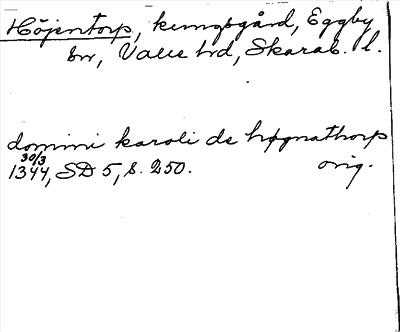 Höjentorp, kungsgård, Eggby
sn, Valle hd, Skarab. l.
domini karoli de høgnathorp
30/3
1344, SD 5, s. 250. orig.